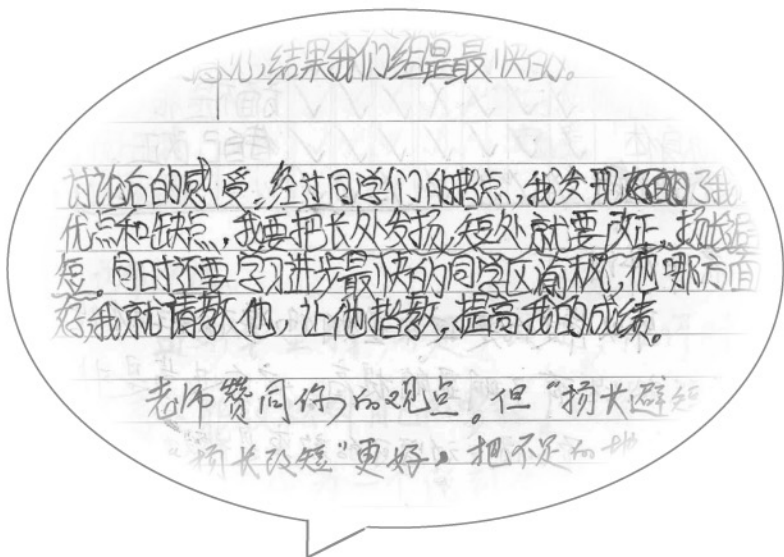 结果我们组是最快的。
讨论后的感受。经过同学们的指点，我发现了我
优点和缺点，我要把长处发扬，短处就要改正，扬长避
短。同时还要学习进步最快的同学区  枫，他哪方面
好，我就请教他，让他指教，提高我的成绩。
老师赞同你的观点。但“扬长避短
“扬长改短”更好，把不足的地